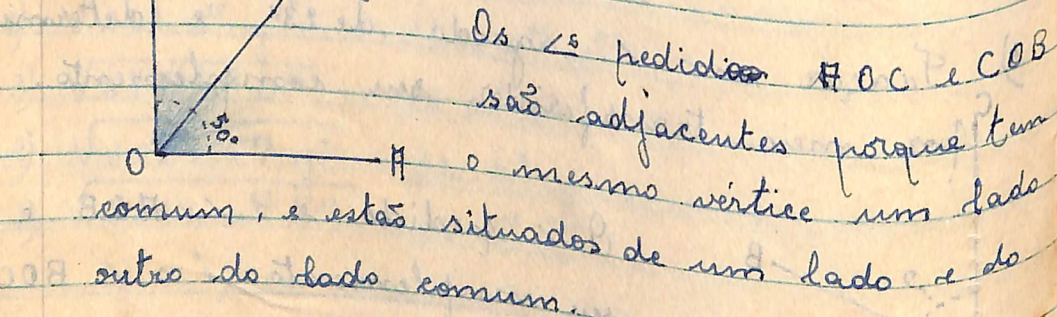 Os ∠s pedidos AOC e COB
são adjacentes porque tem
50°
O A o mesmo vértice um lado
comum, e estão situados de um lado e do
outro do lado comum.